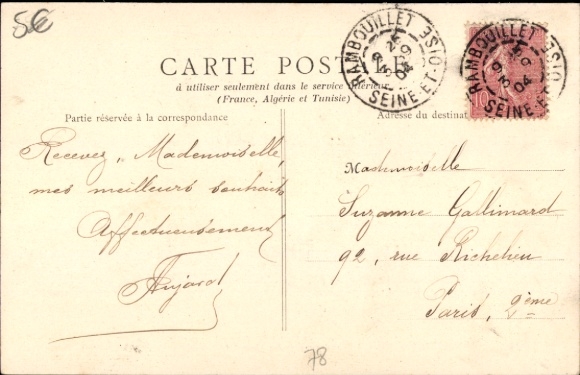 5€
CARTE POSTALE
à utiliser seulement dans le service intérieur
(France, Algérie et Tunisie)
RAMBOUILLET
SEINE-ET-OISE
04
RAMBOUILLET
SEINE-ET-OISE
04
10
Partie réservée à la correspondance
Adresse du destinat
Recevez, Mademoiselle,
mes meilleurs souhaits
Affectueusement
Mademoiselle
Suzanne Gallimard
92, rue Richelieu
Paris, 2ème
78